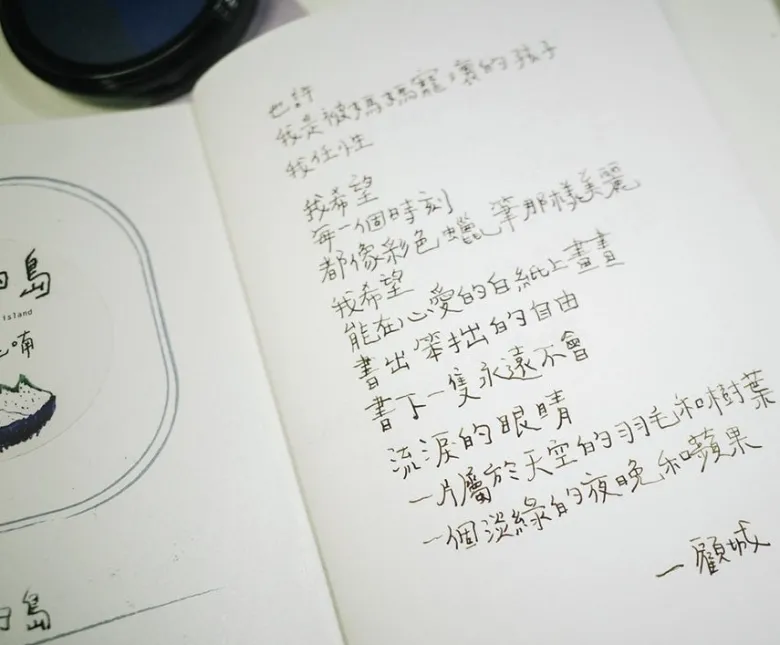 島
Island
喃
島
也許
我是被媽媽寵壞的孩子
我任性
我希望
每一個時刻
都像彩色蠟筆那樣美麗
我希望
能在心愛的白紙上畫畫
書出笨拙的自由
書下一隻永遠不會
流淚的眼睛
一片屬於天空的羽毛和樹葉
一個淡綠的夜晚和蘋果
—顧城